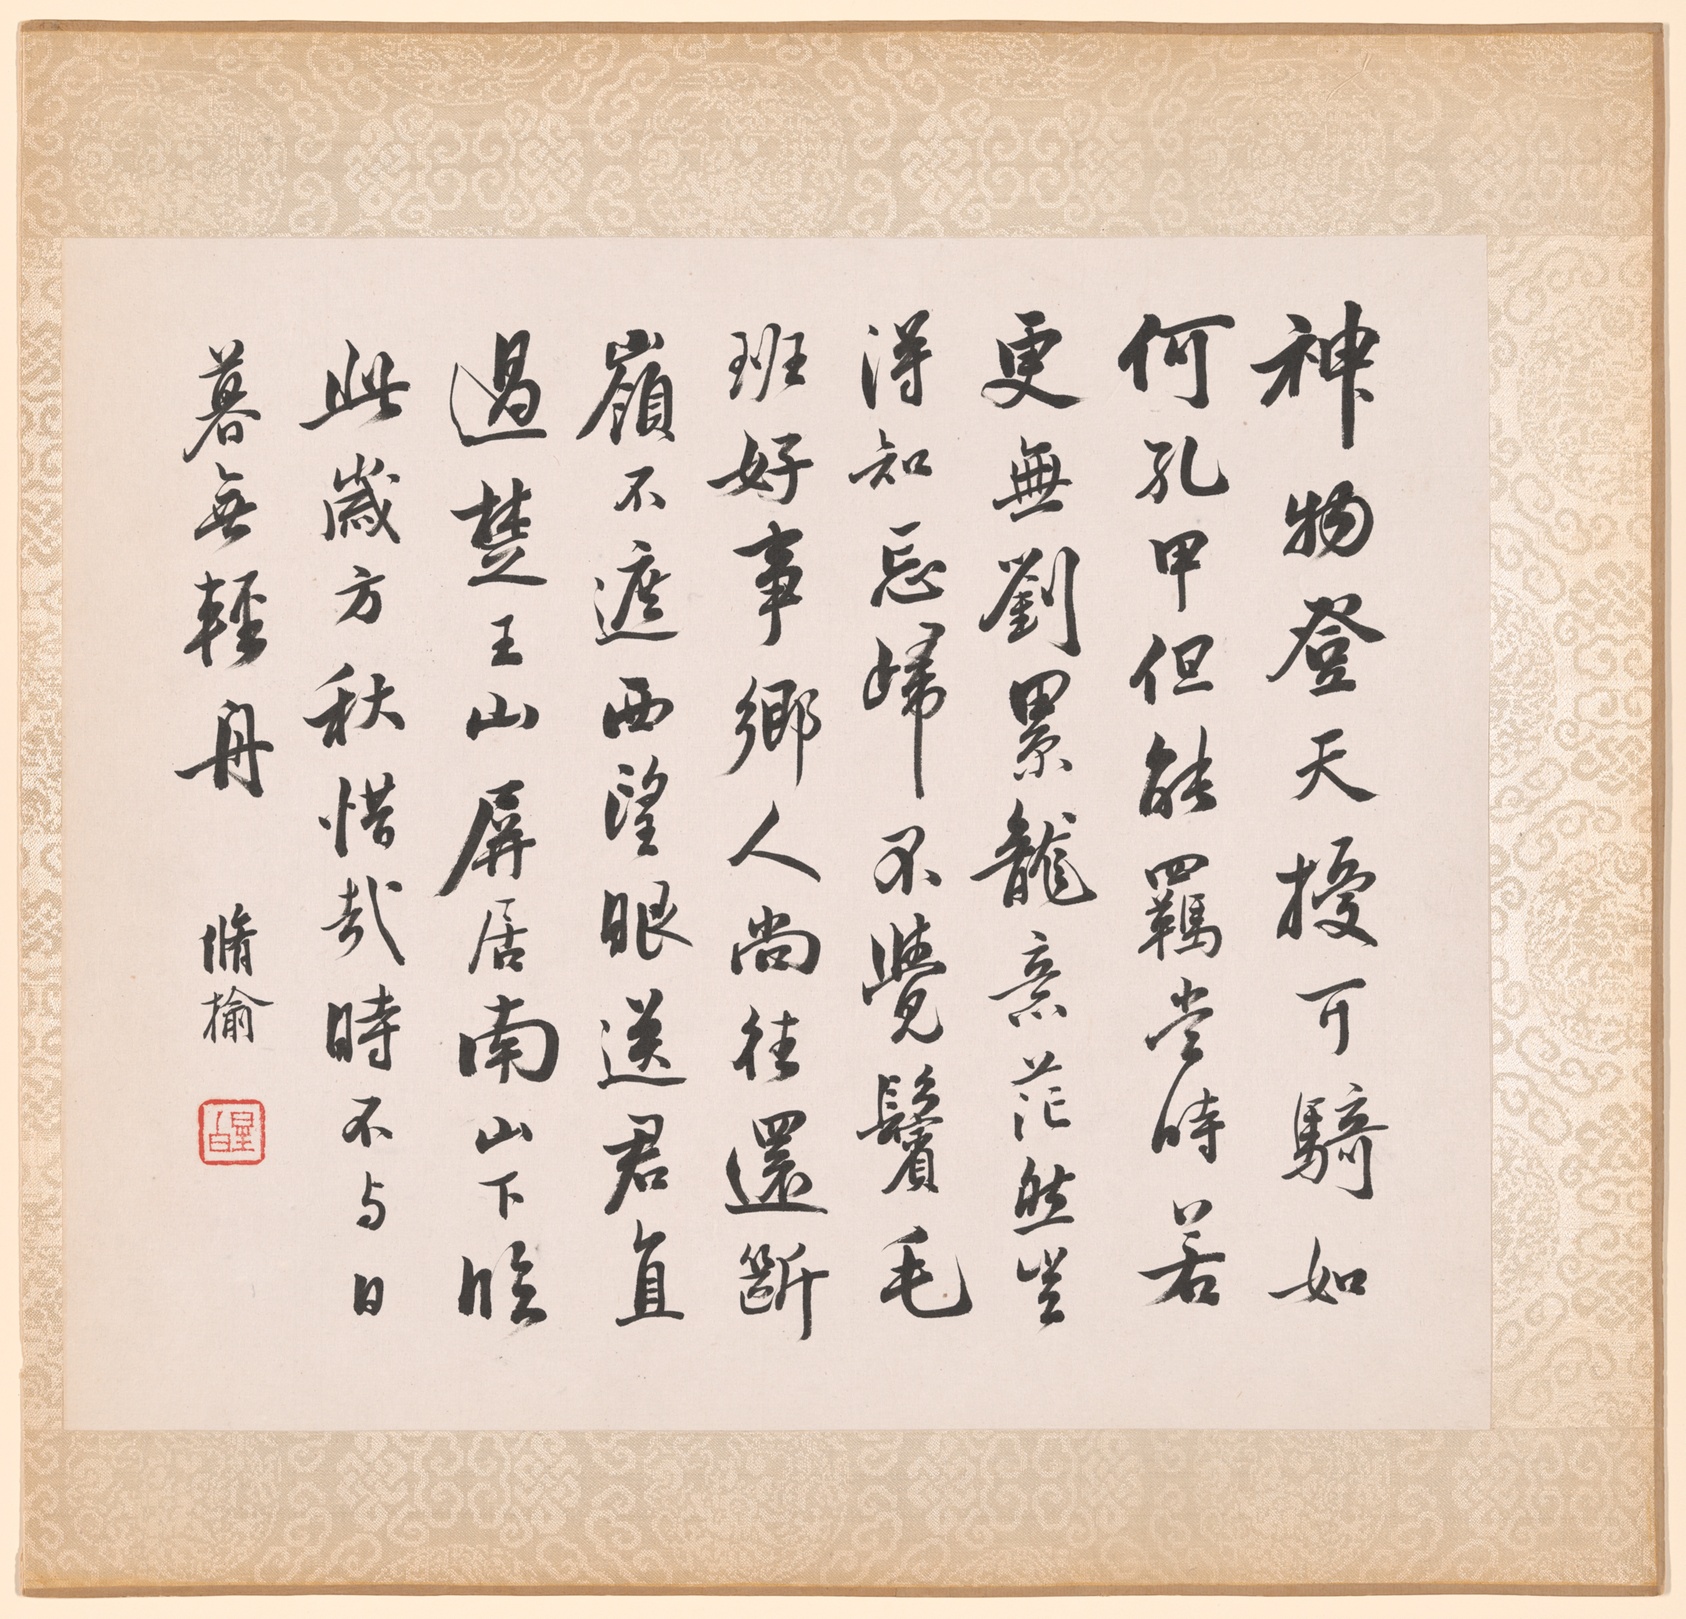 神物登天擾可騎如
何孔甲但能羈當時若
更無劉累龍意茫然豈
得知忘歸不覺鬢毛
班好事鄉人尚往還斷
嶺不遮西望眼送君直
過楚王山屏居南山下臨
此歲方秋惜哉時不与日
暮無輕舟
脩揄